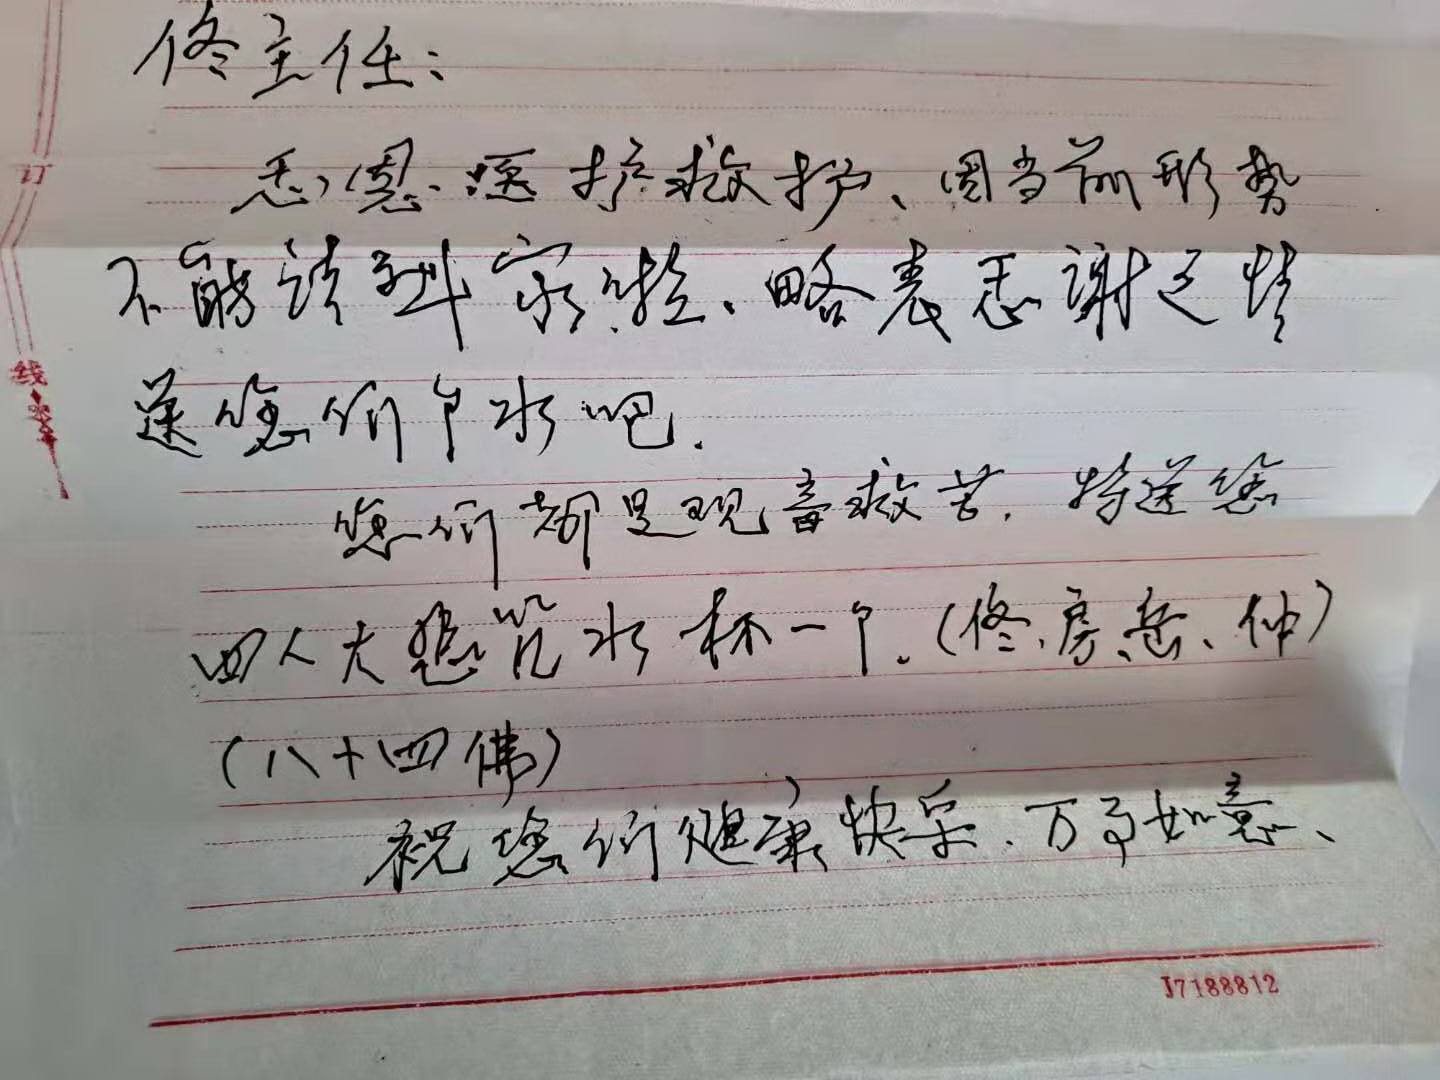 佟主任：
感恩医护救护、因当前形势
不能请到家啦、略表感谢之情
送您们个水吧.
您们都是观音救苦．特送您
四人大悲咒水杯一个.（佟、房、岳、仲）
（八十四佛）
祝您们健康快乐．万事如意、
订
线
J7188812